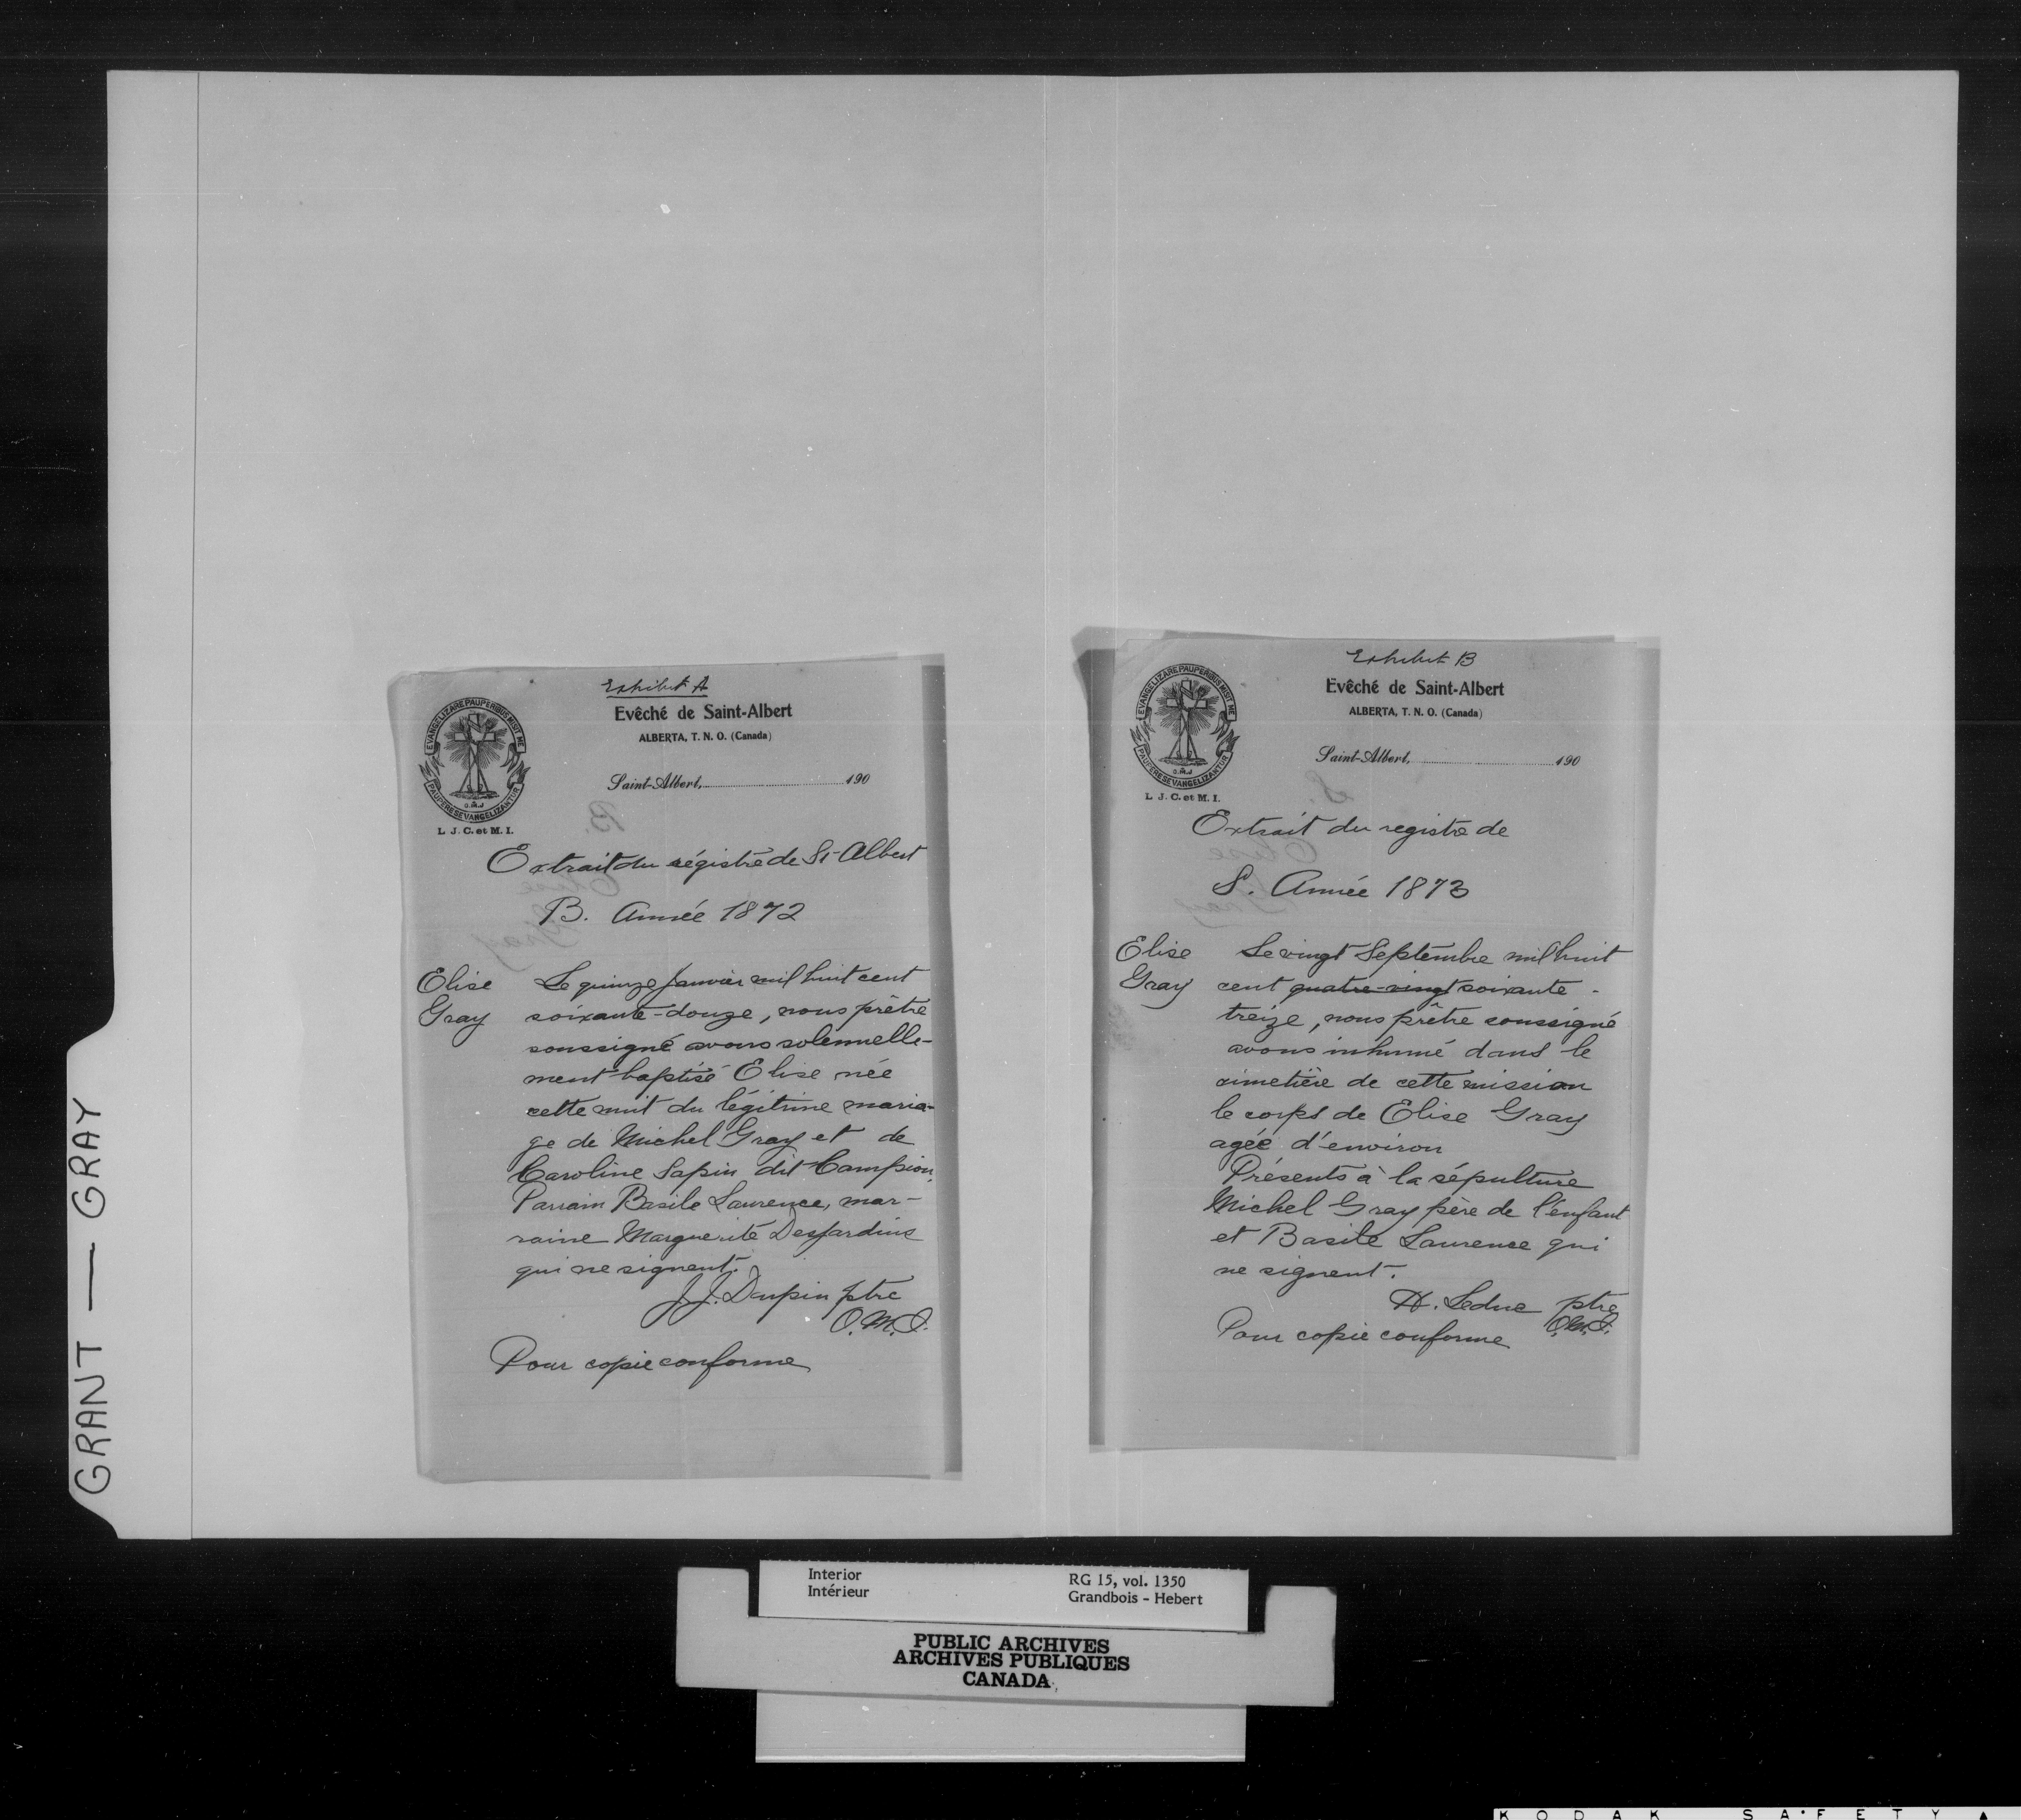 Exhibit A
Evêché de Saint-Albert
ALBERTA, T. N. O. (Canada)
Saint-Albert, 190
EVANGELIZARE PAUPERIBUS MISIT ME
PAUPERES EVANGELIZANTUR
O.M.J
L. J. C. et M. I.
Extrait du régistre de St-Albert
B. Année 1872
Elise
Gray
Le quinze Janvier mil huit cent
soixante-douze, nous prêtre
soussigné avons solennelle-
ment baptisé Elise née
cette nuit du légitime maria-
ge de Michel Gray et de
Caroline Sapin dit Campion.
Parrain Basile Laurence, mar-
raine Marguerite Desjardins
qui ne signent.
J.J. Dupin ptre
O.M.I.
Pour copie conforme
Exhibit B
Evêché de Saint-Albert
ALBERTA, T. N. O. (Canada)
Saint-Albert, 190
EVANGELIZARE PAUPERIBUS MISIT ME
PAUPERES EVANGELIZANTUR
O.M.J
L. J. C. et M. I.
Extrait du registre de
S. Année 1873
Elise
Gray
Le vingt Septembre mil huit
cent quatre-vingt soixante-
treize, nous prêtre soussigné
avons inhumé dans le
cimetière de cette mission
le corps de Elise Gray
agée d'environ
Présents à la sépulture
Michel Gray père de l'enfant
et Basile Laurence qui
ne signent.
H. Leduc ptre
O.M.I.
Pour copie conforme
GRANT — GRAY
Interior
Intérieur
RG 15, vol. 1350
Grandbois - Hebert
PUBLIC ARCHIVES
ARCHIVES PUBLIQUES
CANADA
KODAK SAFETY